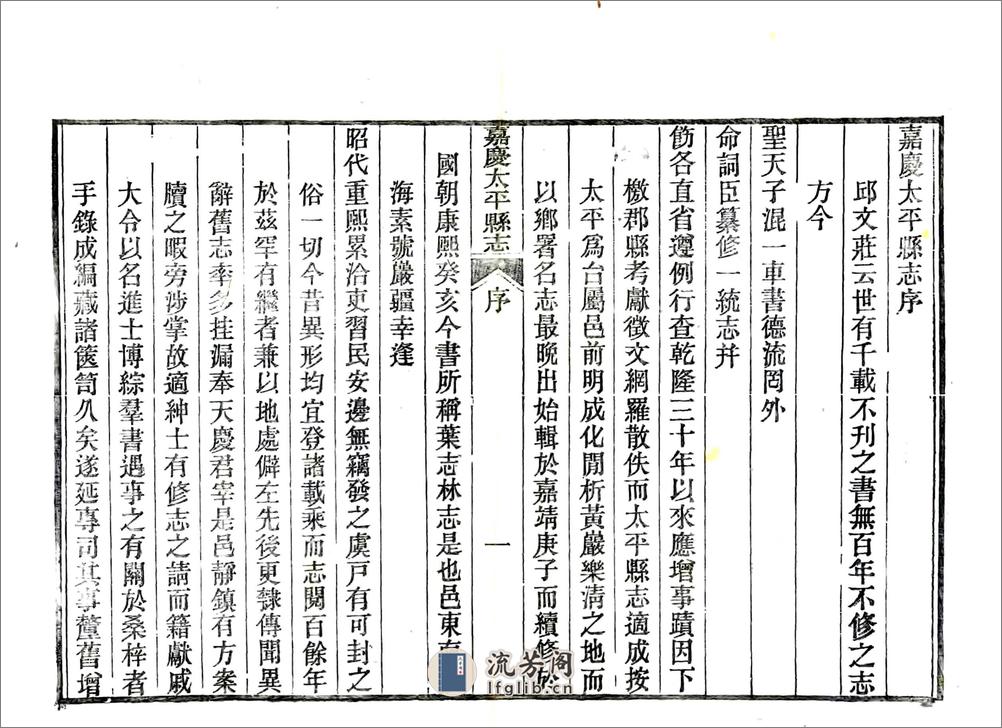 嘉慶太平縣志序
邱文莊云世有千載不刊之書無百年不修之志
方今
聖天子混一車書德流罔外
命詞臣纂修一統志并
飭各直省遵例行查乾隆三十年以來應增事蹟因下
檄郡縣考獻徵文網羅散佚而太平縣志適成按
太平爲台屬邑前明成化閒析黃巖樂淸之地而
以鄉署名志最晚出始輯於嘉靖庚子而續修於
嘉慶太平縣志 序 一
國朝康熙癸亥今書所稱葉志林志是也邑東
海素號巖疆幸逢
昭代重熙累洽吏習民安邊無竊發之虞戸有可封之
俗一切今昔異形均宜登諸載乘而志闕百餘年
於茲罕有繼者兼以地處僻左先後更隸傳聞異
辭舊志率多挂漏奉天慶君宰是邑靜鎮有方案
牘之暇旁涉掌故適紳士有修志之請而籍獻戚
大令以名進士博綜羣書遇事之有關於桑梓者
手錄成編藏諸篋笥久矣遂延專司其事釐舊增
流芳阁
lfglib.cn